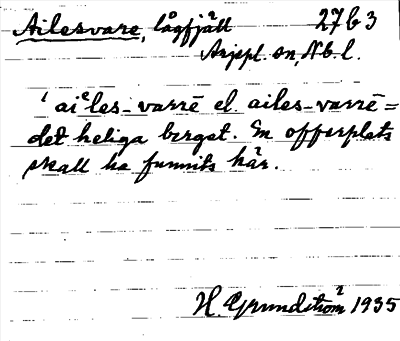 Ailesvare, lågfjäll 27 b 3
Arjepl. sn, Nb. l.
'aiᵉles-varrē el. ailes-varrē =
det heliga berget. En offerplats
skall ha funnits här.
H. Grundström 1935